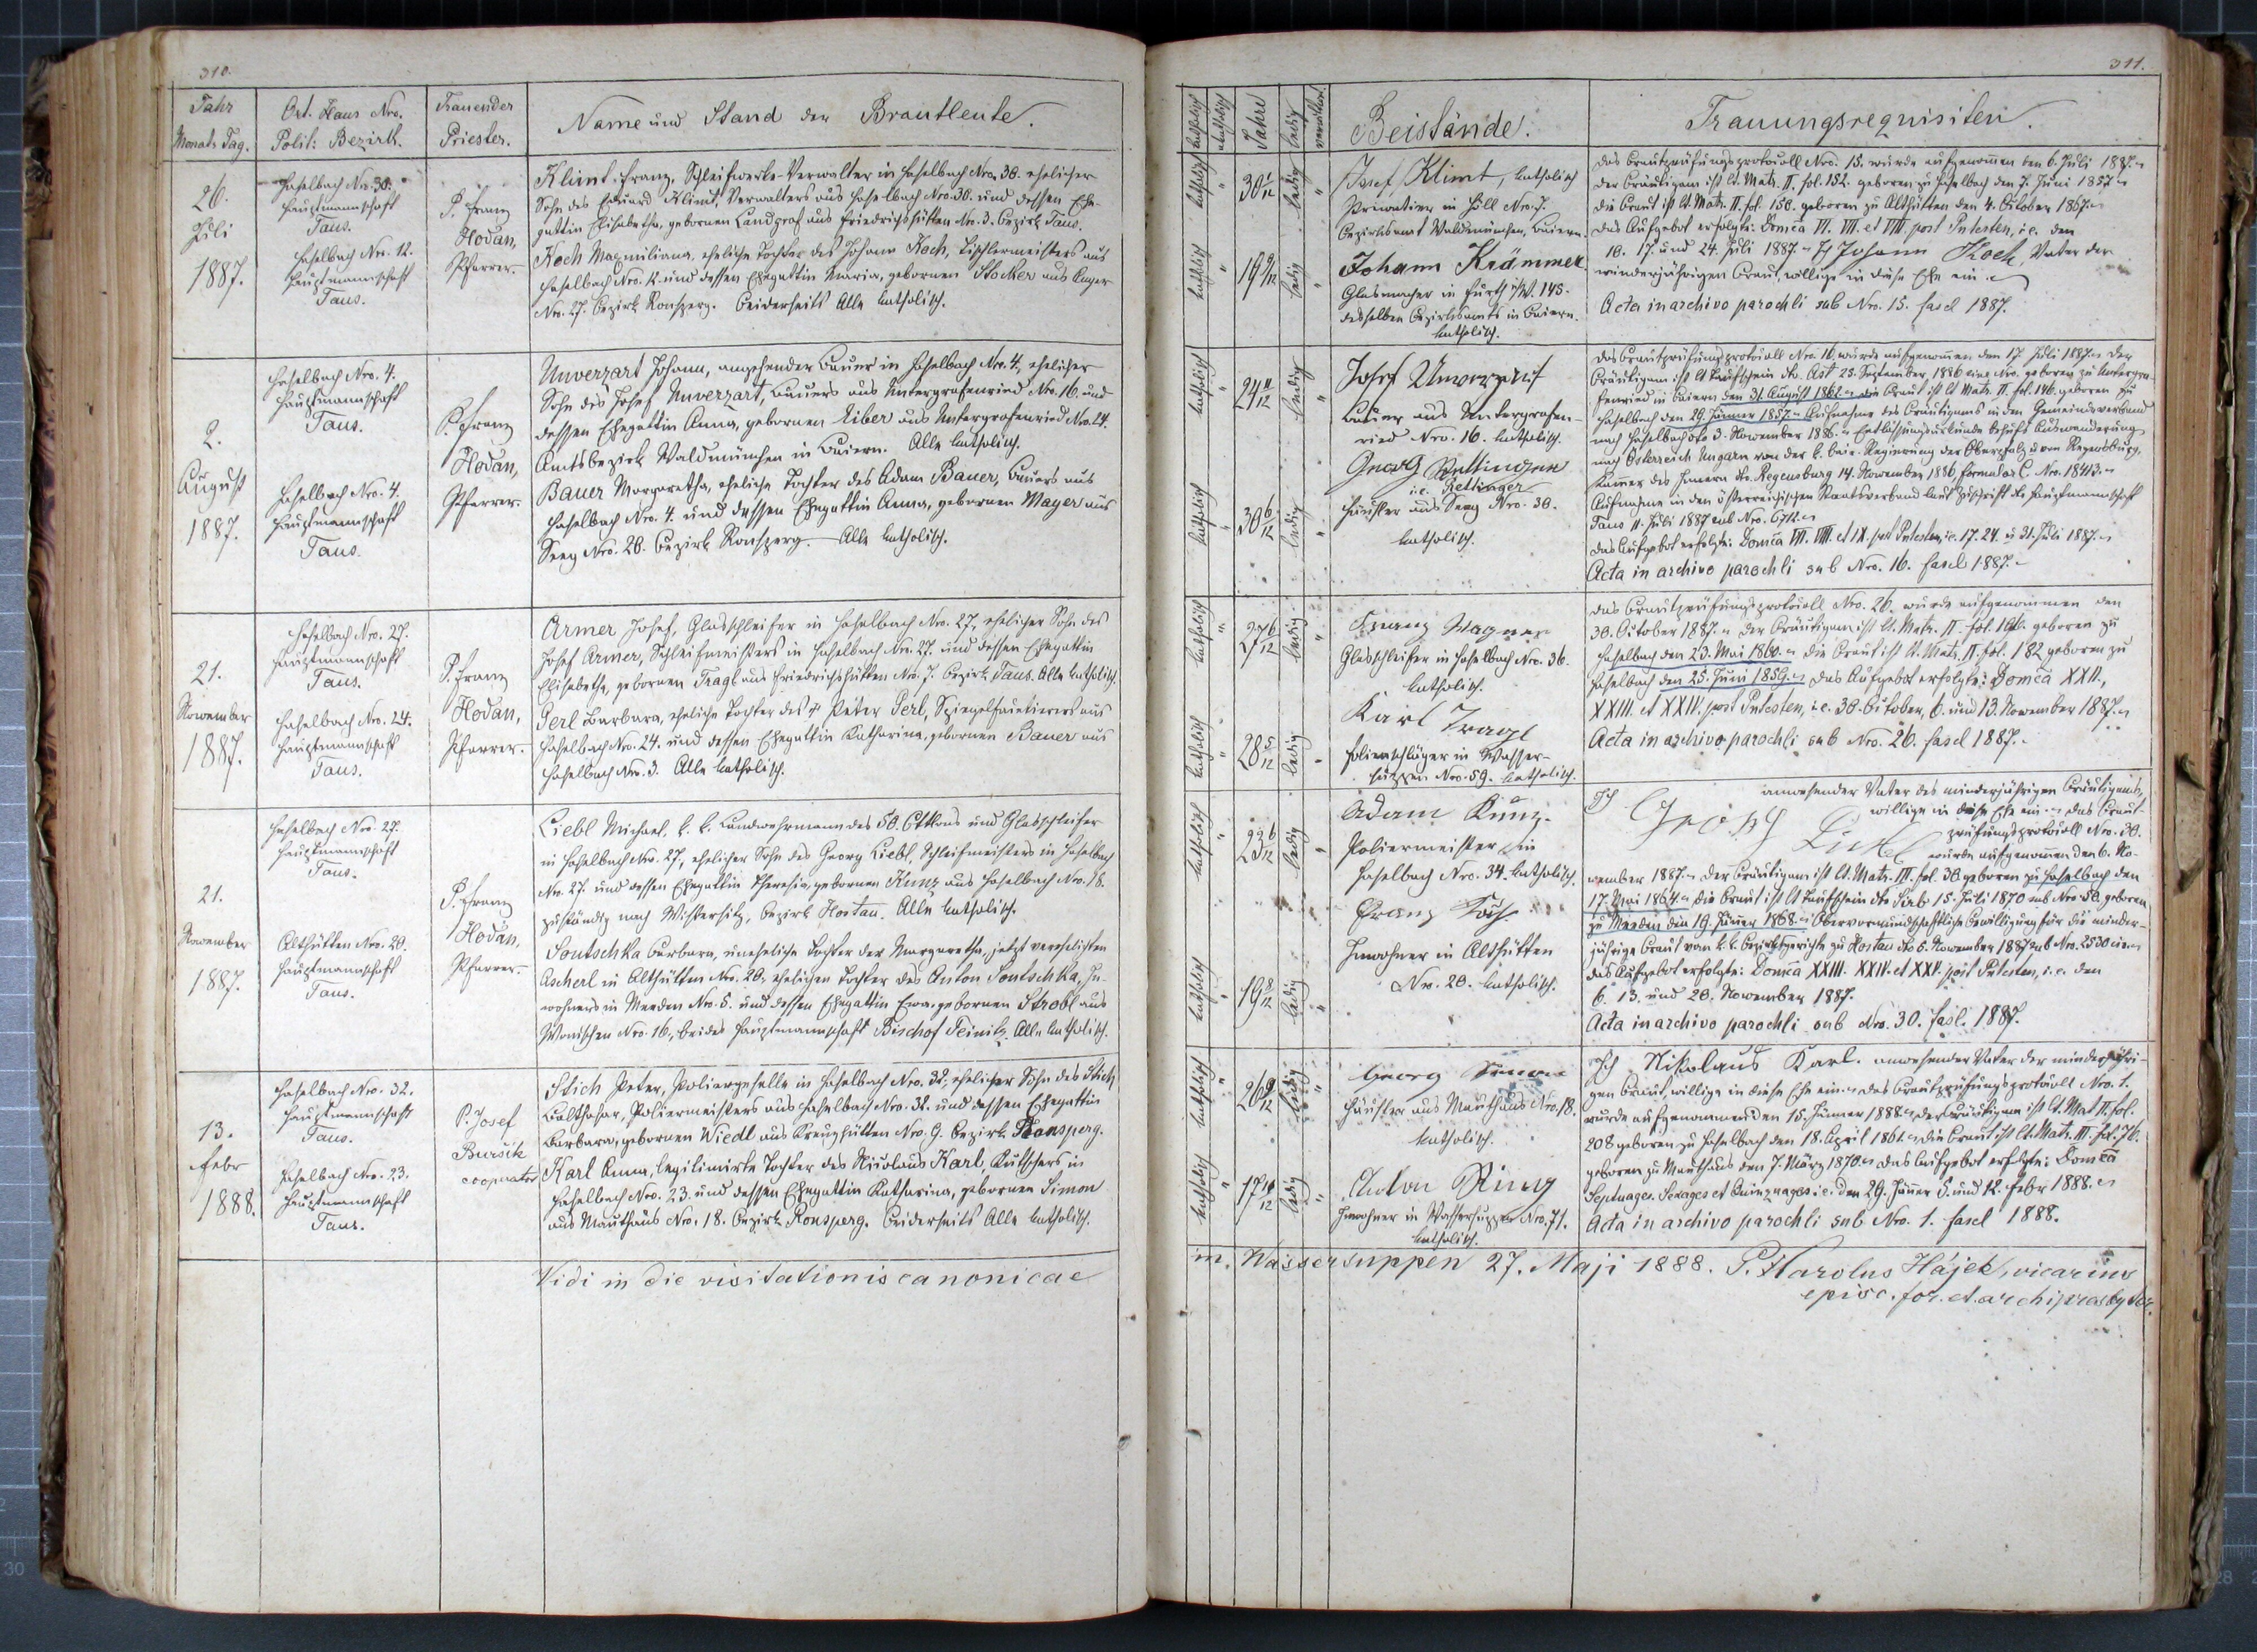 310.
Jahr
Monat Tag.
Ort. Haus Nro.
Polit: Bezirk.
Trauender
Priester.
Name und Stand der Brautleute.
26.
Juli
1887.
Haselbach Nro. 30.
Hauptmannschaft
Taus.
Haselbach Nro. 12.
Hauptmannschaft
Taus.
P. Franz
Hodan,
Pfarrer.
Klimt Franz, Schleifwerks-Verwalter in Haselbach Nro. 30. ehelicher
Sohn des Eduard Klimt, Verwalters aus Haselbach Nro. 30. und dessen Ehe-
gattin Elisabetha, gebornen Landgraf aus Friedrichshütten Nr. 3. Bezirk Taus.
Koch Maxmiliana, eheliche Tochter des Johann Koch, Tischlermeisters aus
Haselbach Nro. 12. und dessen Ehegattin Maria, gebornen Stocker aus
Nro. 27. Bezirk Ronsperg. Beiderseits Alle katholisch.
2.
August
1887.
Haselbach Nro. 4.
Hauptmannschaft
Taus.
Haselbach Nro. 4.
Hauptmannschaft
Taus.
P. Franz
Hodan,
Pfarrer.
Unverzart Johann, angehender Bauer in Haselbach Nro. 4, ehelicher
Sohn des Josef Unverzart, Bauers aus Untergrafenried Nro. 16. und
dessen Ehegattin Anna, gebornen Eiber aus Untergrafenried Nro. 24.
Amtsbezirk Waldmünchen in Baiern. Alle katholisch.
Bauer Margaretha, eheliche Tochter des Adam Bauer, Bauers aus
Haselbach Nro. 4. und dessen Ehegattin Anna, gebornen Mayer aus
Seeg Nro. 20. Bezirk Ronsperg. Alle katholisch.
21.
November
1887.
Haselbach Nro. 27.
Hauptmannschaft
Taus.
Haselbach Nro. 24.
Hauptmannschaft
Taus.
P. Franz
Hodan,
Pfarrer.
Armer Josef, Glasschleifer in Haselbach Nro. 27, ehelicher Sohn des
Josef Armer, Schleifmeisters in Haselbach Nro. 27. und dessen Ehegattin
Elisabetha, gebornen Tragl aus Friedrichshütten Nro. 7. Bezirk Taus. Alle katholisch.
Perl Barbara, eheliche Tochter des † Peter Perl, aus
Haselbach Nro. 24. und dessen Ehegattin Katharina, gebornen Bauer aus
Haselbach Nro. 3. Alle katholisch.
21.
November
1887.
Haselbach Nro. 27.
Hauptmannschaft
Taus.
Althütten Nro. 20.
Hauptmannschaft
Taus.
P. Franz
Hodan,
Pfarrer.
Liebl Michael, k. k. Landwehrmann des 50. Bttlons und Glasschleifer
in Haselbach Nro. 27, ehelicher Sohn des Georg Liebl, Schleifmeisters in Haselbach
Nro. 27. und dessen Ehegattin Theresia, gebornen Kunz aus Haselbach Nro. 18.
zuständig nach Wistersitz, Bezirk Hostau. Alle katholisch.
Soutschka Barbara, uneheliche Tochter der Margaretha, jetzt verehelichten
Ascherl in Althütten Nro. 20, ehelichen Tochter des Anton Soutschka, In-
wohners in Meeden Nro. 5. und dessen Ehegattin Eva, gebornen Strobl aus
Wonischen Nro. 16, beides Hauptmannschaft Bischof Teinitz. Alle katholisch.
13.
Febr
1888.
Haselbach Nro. 32.
Hauptmannschaft
Taus.
Haselbach Nro. 23.
Hauptmannschaft
Taus.
P. Josef
Bursik
cooperator
Stich Peter, Poliergeselle in Haselbach Nro. 32, ehelicher Sohn des Stich
Balthasar, Poliermeisters aus Haselbach Nro. 32. und dessen Ehegattin
Barbara, gebornen Wiedl aus Kreuzhütten Nro. 9. Bezirk Ronsperg.
Karl Anna, legitimirte Tochter des Nicolaus Karl, Kutschers in
Haselbach Nro. 23. und dessen Ehegattin Katharina, gebornen Simon
aus Mauthaus Nro. 18. Bezirk Ronsperg. Beiderseits Alle katholisch.
Vidi in die visitationis canonicae
311.
katholisch
akatholisch
Jahre
ledig
verwittwet
Beistände.
Trauungsrequisiten.
katholisch " 30 1/12 ledig "
katholisch " 19 9/12 ledig "
Josef Klimt, katholisch
Privatier in Höll Nro. 7.
Bezirksamt Waldmünchen, Baiern.
Johann Krämmer
Glasmacher in Furth i/W. 145.
desselben Bezirksamts in Baiern.
katholisch.
Das Brautprüfungsprotocoll Nro. 15. wurde aufgenommen den 6. Juli 1887.
Der Bräutigam ist lt. Matr. II. fol. 152. geboren zu Haselbach den 7. Juni 1857
Die Braut ist lt. Matr. II. fol. 150. geboren zu Althütten den 4. October 1867.
Das Aufgebot erfolgte: Domca VI. VII. et VIII. post Pntesten, i.e. den
10. 17. und 24. Juli 1887. Ich Johann Koch, Vater der
minderjährigen Braut, willige in diese Ehe ein.
Acta in archivo parochli sub Nro. 15. fascl 1887.
katholisch " 24 11/12 ledig "
katholisch " 30 6/12 ledig "
Josef Unverzart
Bauer aus Untergrafen-
ried Nro. 16. katholisch.
Georg Rettinger
i.e. Rettinger
Häusler aus Seeg Nro. 30.
katholisch.
Das Brautprüfungsprotocoll Nro. 16. wurde aufgenommen den 17. Juli 1887. Der
Bräutigam ist lt Taufschein dto. Ast 25. September 1886 sine Nro. geboren zu Untergra-
fenried in Baiern den 31. August 1862. die Braut ist lt Matr. II. fol. 146. geboren zu
Haselbach den 29. Jänner 1857. Aufnahme des Bräutigams in den Gemeindeverband
nach Haselbach dto 3. November 1886. Entlassungsurkunde behufs Auswanderung
nach Österreich Ungarn von der k. bair. Regierung der Oberpfalz u von Regensburg,
Kammer des Innern dto. Regensburg 14. November 1886, formular C. Nro. 18413.
Aufnahme in den österreichischen Staatsverband laut Zuschrift der Hauptmannschaft
Taus 11. Juli 1887 sub Nro. 6712.
Das Aufgebot erfolgte: Domca VII. VIII. et IX. post Pntesten, i.e. 17. 24. u 31. Juli 1887.
Acta in archivo parochli sub Nro. 16. fascl 1887.
katholisch " 27 6/12 ledig "
katholisch " 28 5/12 ledig "
Franz Wagner
Glasschleifer in Haselbach Nro. 36.
katholisch.
Karl Tragl
Folienschläger in Wasser-
suppen Nro. 59. katholisch.
Das Brautprüfungsprotocoll Nro. 26. wurde aufgenommen den
30. October 1887. Der Bräutigam ist lt. Matr. II. fol. geboren zu
Haselbach den 23. Mai 1860. Die Braut ist lt. Matr. II. fol. 182 geboren zu
Haselbach den 25. Juni 1859. Das Aufgebot erfolgte: Domca XXII.,
XXIII. et XXIV. post Pntesten, i.e. 30. October, 6. und 13. November 1887.
Acta in archivo parochli sub Nro. 26. fascl 1887.
katholisch " 23 6/12 ledig "
katholisch " 19 8/12 ledig "
Adam Kunz.
Poliermeister in
Haselbach Nro. 34. katholisch.
Franz
Inwohner in Althütten
Nro. 20. katholisch.
Ich Georg Liebl anwesender Vater des minderjährigen Bräutigams,
willige in diese Ehe ein. Das Braut-
prüfungsprotocoll Nro. 30.
wurde aufgenommen den 6. No-
vember 1887. Der Bräutigam ist lt. Matr. III. fol. 30 geboren zu Haselbach den
17. Mai 1864. Die Braut ist lt Taufschein dto Sirb 15. Juli 1870 sub Nro. 50. geboren
zu Meeden den 19. Jänner 1868. Obervormundschaftliche Bewilligung für die minder-
jährige Braut vom k. k. Bezirksgerichte zu Hostau dto 5. November 1887 sub Nro. 2530
Das Aufgebot erfolgte: Domca XXIII. XXIV. et XXV. post Pntesten, i.e. den
6. 13. und 20. November 1887.
Acta in archivo parochli sub Nro. 30. fascl. 1887.
katholisch " 26 9/12 ledig "
katholisch " 17 11/12 ledig "
Georg Simon
Häusler aus Mauthaus Nro. 18.
katholisch.
Anton Ring
Inwohner in Wassersuppen Nro. 71.
katholisch.
Ich Nikolaus Karl. anwesender Vater der minderjähri-
gen Braut, willige in diese Ehe ein. Das Brautprüfungsprotocoll Nro. 1.
wurde aufgenommen den 15. Jänner 1888. Der Bräutigam ist lt. Mat II. fol.
208 geboren zu Haselbach den 18. April 1861. Die Braut ist lt. Matr. III. fol. 76.
geboren zu Mauthaus den 7. März 1870. Das Aufgebot erfolgte: Domca
Septuages. Sexages et Quinquages i.e. den 29. Jänner 5. und 12. Febr 1888.
Acta in archivo parochli sub Nro. 1. fascl 1888.
in. Wassersuppen 27. Maji 1888. P. Karolus Hájek, vicarius
episc. for. et archipresbyter.